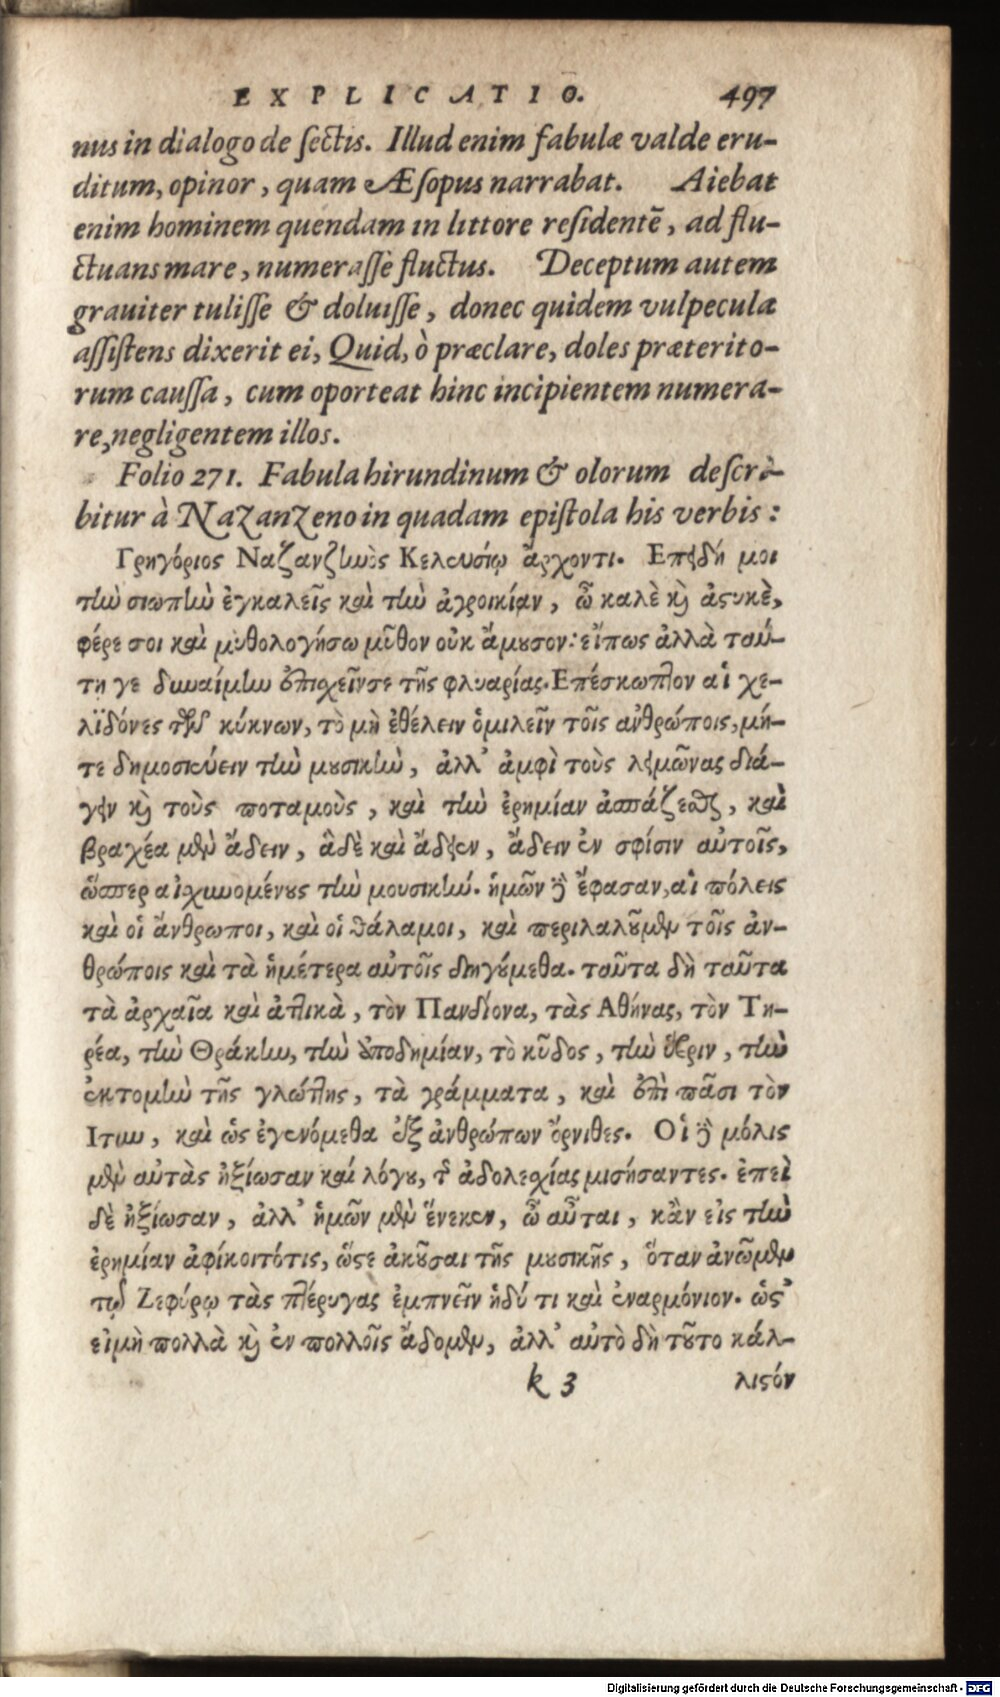 EXPLICATIO. 497
nus in dialogo de sectis. Illud enim fabulæ valde eru-
ditum, opinor, quam Æsopus narrabat. Aiebat
enim hominem quendam in littore residentē, ad flu-
ctuans mare, numerasse fluctus. Deceptum autem
grauiter tulisse & doluisse, donec quidem vulpecula
assistens dixerit ei, Quid, ò præclare, doles præterito-
rum caussa, cum oporteat hinc incipientem numera-
re, negligentem illos.
Folio 271. Fabula hirundinum & olorum descri-
bitur à Nazanzeno in quadam epistola his verbis:
Γρηγόριος Ναζανζηνὸς Κελευσίῳ ἄρχοντι. Επειδή μοι
τὴν σιωπὴν ἐγκαλεῖς καὶ τὴν ἀγροικίαν, ὦ καλὲ καὶ ἀστυκὲ,
φέρε σοι καὶ μυθολογήσω μῦθον οὐκ ἄμουσον: εἴπως ἀλλὰ ταύ-
τη γε δυναίμην ἐπιχεῖνσε τῆς φλυαρίας. Επέσκωπτον αἱ χε-
λϊδόνες τῶν κύκνων, τὸ μὴ ἐθέλειν ὁμιλεῖν τοῖς ἀνθρώποις, μή-
τε δημοσιεύειν τὴν μουσικὴν, ἀλλ᾽ ἀμφὶ τοὺς λειμῶνας διά-
γειν καὶ τοὺς ποταμοὺς, καὶ τὴν ἐρημίαν ἀσπάζεσθαι, καὶ
βραχέα μὲν ἄδειν, ἃ δὲ καὶ ἄδειεν, ἄδειν ἐν σφίσιν αὐτοῖς,
ὥσπερ αἰσχυνομένους τὴν μουσικήν. ἡμῶν δὲ ἔφασαν, αἱ πόλεις
καὶ οἱ ἄνθρωποι, καὶ οἱ θάλαμοι, καὶ περιλαλοῦμεν τοῖς ἀν-
θρώποις καὶ τὰ ἡμέτερα αὐτοῖς διηγούμεθα. ταῦτα δὴ ταῦτα
τὰ ἀρχαῖα καὶ ἀττικὰ, τὸν Πανδίονα, τὰς Αθήνας, τὸν Τη-
ρέα, τὴν Θράκην, τὴν ἀποδημίαν, τὸ κῦδος, τὴν ὕβριν, τὴν
ἐκτομὴν τῆς γλώττης, τὰ γράμματα, καὶ ἐπὶ πᾶσι τὸν
Ιτυν, καὶ ὡς ἐγενόμεθα ἐξ ἀνθρώπων ὄρνιθες. Οἱ δὲ μόλις
μὲν αὐτὰς ἠξίωσαν καί λόγου, τῆς ἀδολεσχίας μισήσαντες. ἐπεὶ
δὲ ἠξίωσαν, ἀλλ᾽ ἡμῶν μὲν ἕνεκεν, ὦ αὗται, κἂν εἰς τὴν
ἐρημίαν ἀφίκοιτότις, ὥστε ἀκοῦσαι τῆς μουσικῆς, ὅταν ἀνῶμεν
τῷ Ζεφύρῳ τὰς πτέρυγας ἐμπνεῖν ἡδύ τι καὶ ἐναρμόνιον. ὡς
εἰμὴ πολλὰ καὶ ἐν πολλοῖς ἄδομεν, ἀλλ᾽ αὐτὸ δὴ τοῦτο κάλ-
k 3 λιστόν
Digitalisierung gefördert durch die Deutsche Forschungsgemeinschaft - DFG